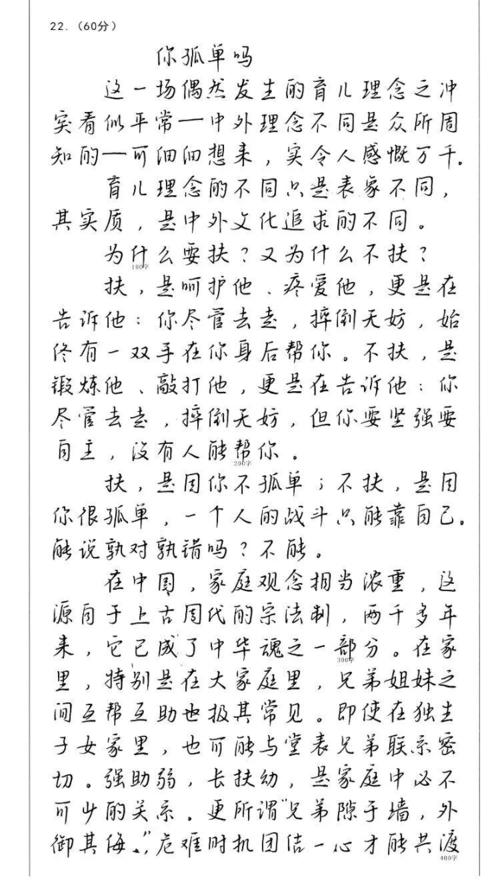 22.（60分）
你孤单吗
这一场偶然发生的育儿理念之冲
突看似平常一中外理念不同是众所周
知的一可细细想来，实令人感慨万千。
育儿理念的不同只是表象不同，
其实质，是中外文化追求的不同。
为什么要扶？又为什么不扶？
100字
扶，是呵护他、疼爱他，更是在
告诉他：你尽管去走，摔倒无妨，始
终有一双手在你身后帮你。不扶，是
锻炼他、敲打他，更是在告诉他：你
尽管去走，摔倒无妨，但你要坚强要
自主，没有人能帮你。
200字
扶，是因你不孤单；不扶，是因
你很孤单，一个人的战斗只能靠自己。
能说孰对孰错吗？不能。
在中国，家庭观念相当浓重，这
源自于上古周代的宗法制，两千多年
来，它已成了中华魂之一部分。在家
300字
里，特别是在大家庭里，兄弟姐妹之
间互帮互助也极其常见。即使在独生
子女家里，也可能与堂表兄弟联系密
切。强助弱，长扶幼，是家庭中必不
可少的关系。更所谓“兄弟隙于墙，外
御其侮。”危难时机团结一心才能共渡
400字